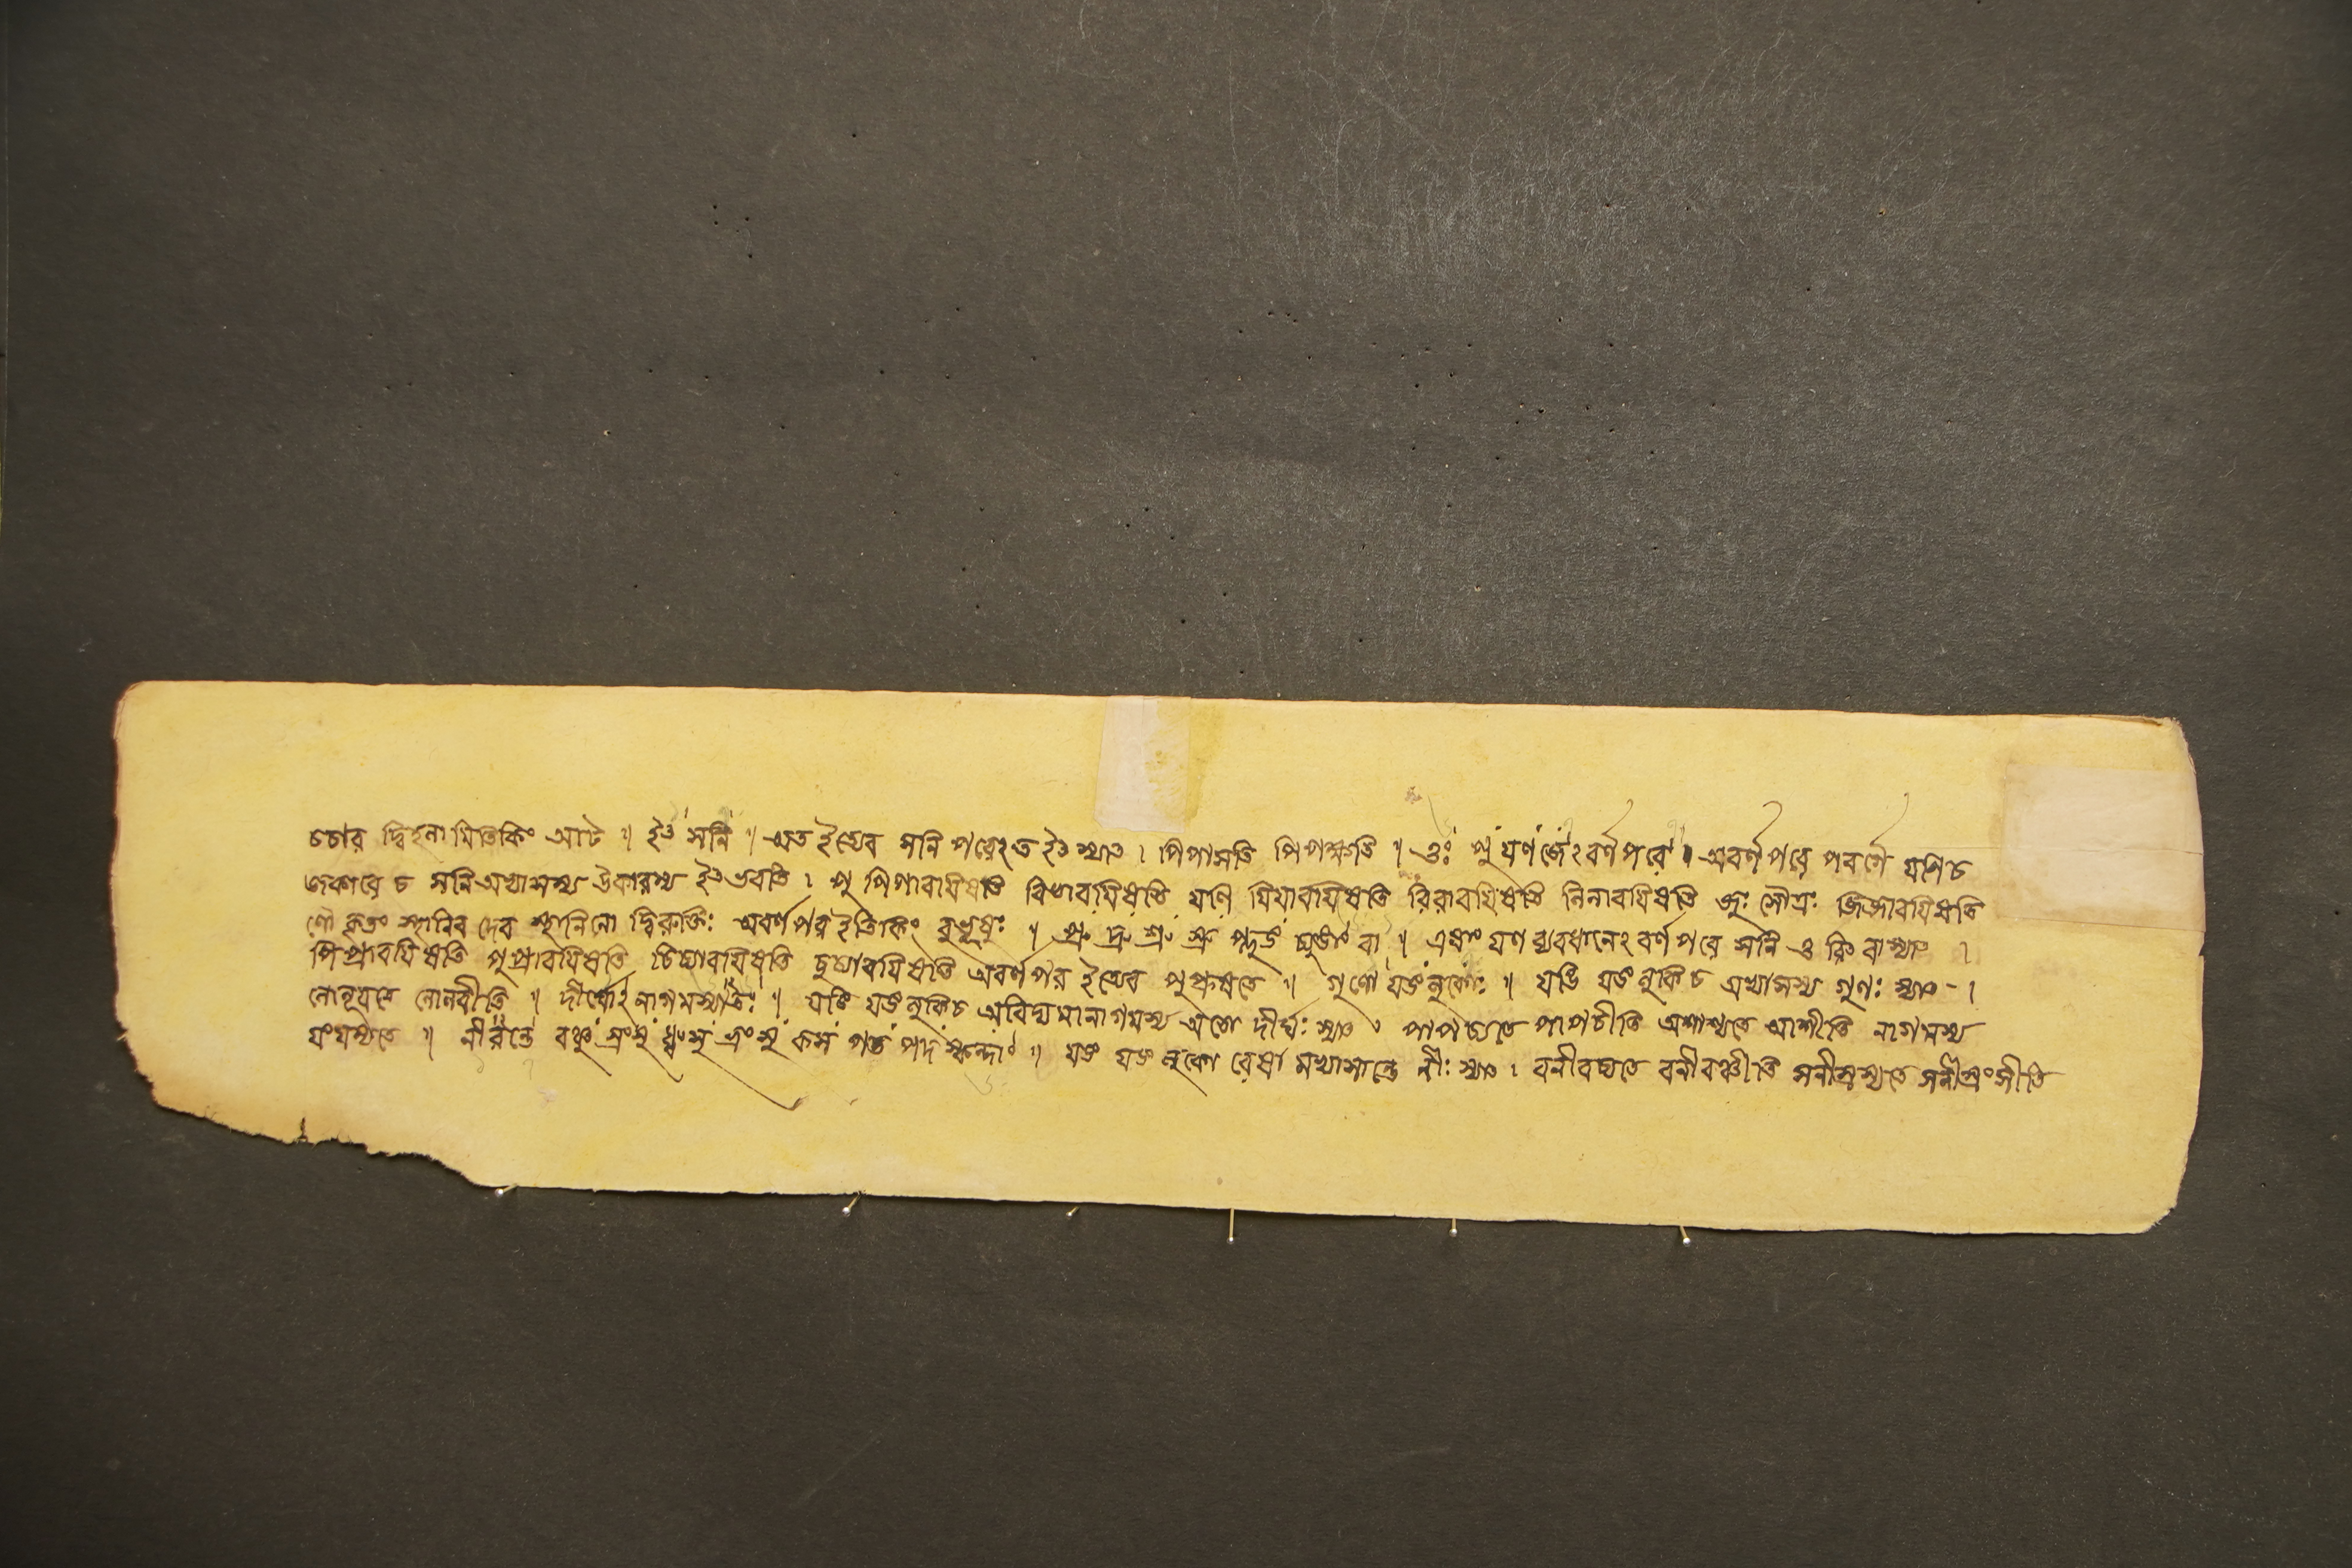 চচার দ্বিহনামিতিকিং আট ॥ ইৎ সনি ॥ অত ইত্যেব সনি পরেঽত ইৎ স্যাৎ । পিপাসতি পিপক্ষতি ॥ ওঃ পুযণ্ জেঽবর্ণপরে ॥ অবর্ণপরে পবর্গে যণিচ
জকারে চ সনি অখ্যাসস্য উকারস্য ইৎ ভবতি । পু পিপাবযিষতি বিভাবযিষতি যণি যিযাবযিষতি রিরাবযিষতি নিনাবযিষতি জুঃ সৌত্রঃ জিজাবযিষতি
ণৌ কৃতং স্থানিব দেব স্থানিনো দ্বিরুক্তিঃ অবর্ণপর ইতিকিং বুভূষুঃ ॥ প্রু দ্রু শ্রু স্রু প্লুঙ চ্যুঙাং বা ॥ এষাং যণ ব্যবধানেঽবর্ণপরে সনি ও রি বাস্যাৎ ।
পিপ্রাবযিষতি পুপ্রাবযিষতি চিচ্যাবযিষতি চুচ্যাবযিষতি অবর্ণপর ইত্যেব পুপ্লূষতে ॥ গুণো যঙলুকোঃ ॥ যঙি যঙলুকিচ অখ্যাসস্য গুণঃ স্যাৎ - ।
নোনূযতে নোনবীতি ॥ দীর্ঘোঽনাগমস্যাতঃ ॥ যঙি যঙলুকিচ অবিদ্যমানাগমস্য অতো দীর্ঘঃ স্যাৎ । পাপচ্যতে পাপচীতি অশাশ্যতে আশীতি নাগমস্য
যংযম্যতে ॥ নীরন্তে বঞ্চু স্রংসু ধ্বংসু ভ্রংসু কস পত পদ স্কন্দাং ॥ যঙ যঙলুকো রেষা মখ্যাসান্তে নীঃ স্যাৎ । বনীবচ্যতে বনীবঞ্চীতি সনীস্রস্যতে সনীস্রংসীতি